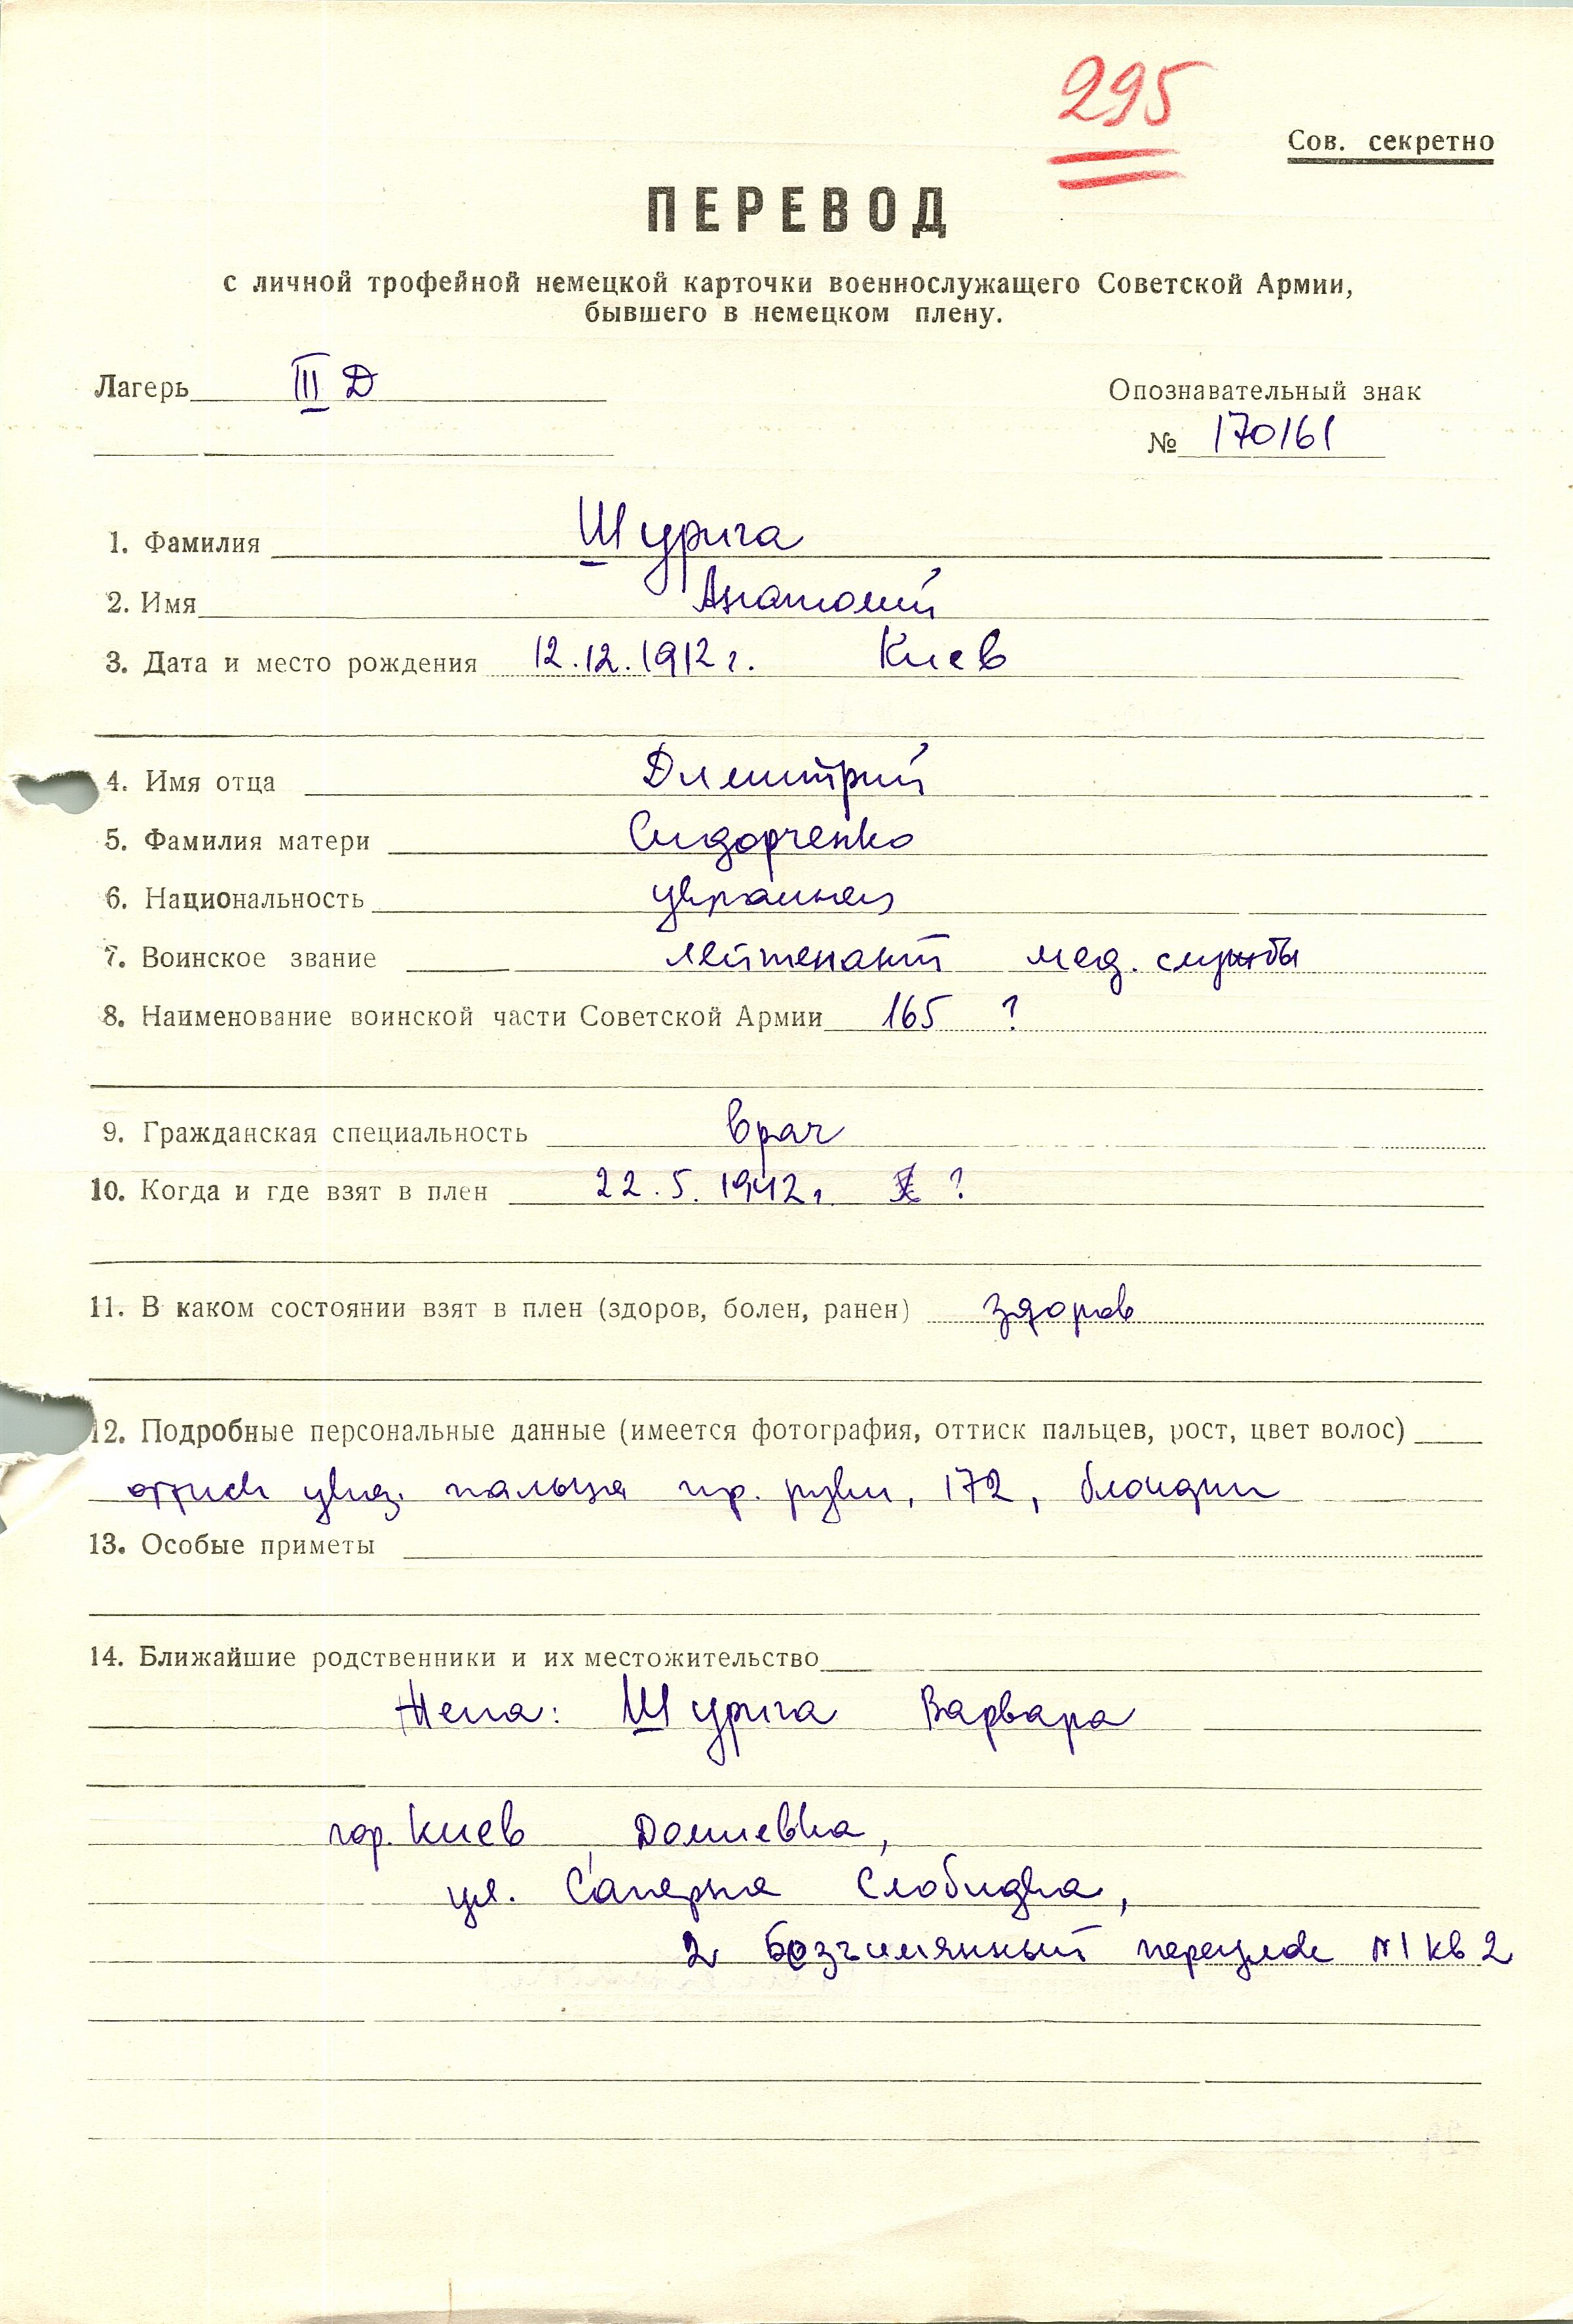 295
Сов. секретно
ПЕРЕВОД
с личной трофейной немецкой карточки военнослужащего Советской Армии,
бывшего в немецком плену.
Лагерь III Д
Опознавательный знак
№ 170161
1. Фамилия Шурига
2. Имя Анатолий
3. Дата и место рождения 12.12.1912 г. Киев
4. Имя отца Димитрий
5. Фамилия матери Сидорченко
6. Национальность украинец
7. Воинское звание лейтенант мед. службы
8. Наименование воинской части Советской Армии 165 ?
9. Гражданская специальность врач
10. Когда и где взят в плен 22.5.1942 г. ?
11. В каком состоянии взят в плен (здоров, болен, ранен) здоров
12. Подробные персональные данные (имеется фотография, оттиск пальцев, рост, цвет волос)
оттиск указ. пальца пр. руки, 172, блондин
13. Особые приметы
14. Ближайшие родственники и их местожительство
Жена: Шурига Варвара
гор. Киев, Домиевка,
ул. Саперня Слобидка,
2 Безъимянный переулок N 1 кв 2